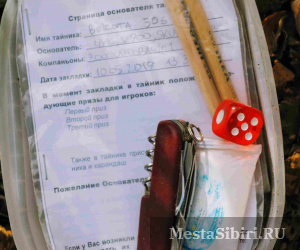 Страница основателя та
Имя тайника: Высота 506
Основатель:
Компаньоны:
Дата закладки: 10.02.2019
В момент закладки в тайник полож
дующие призы для игроков:
Первый приз
Второй приз
Третий приз
Также в тайнике
и карандаш.
Пожелание Основател
Если у Вас возникли
MestaSibiri.RU